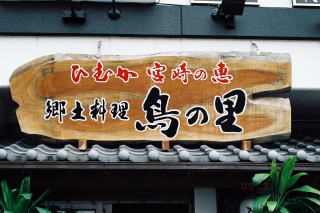 ひむか 宮崎の恵
郷土料理 鳥の里